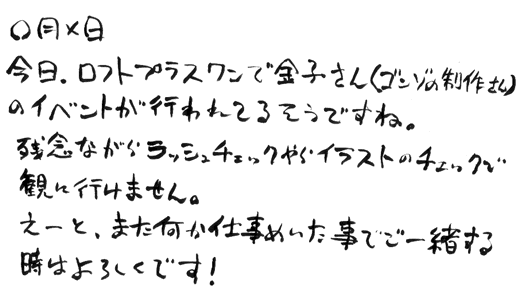 ○月×日
今日、ロフトプラスワンで金子さん(ゴンゾの制作さん)
のイベントが行われてるそうですね。
残念ながらラッシュチェックやらイラストのチェックで
観に行けません。
えーと、また何か仕事めいた事でご一緒する
時はよろしくです!